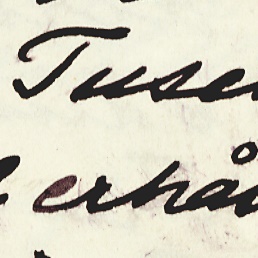 Tuse
erhå